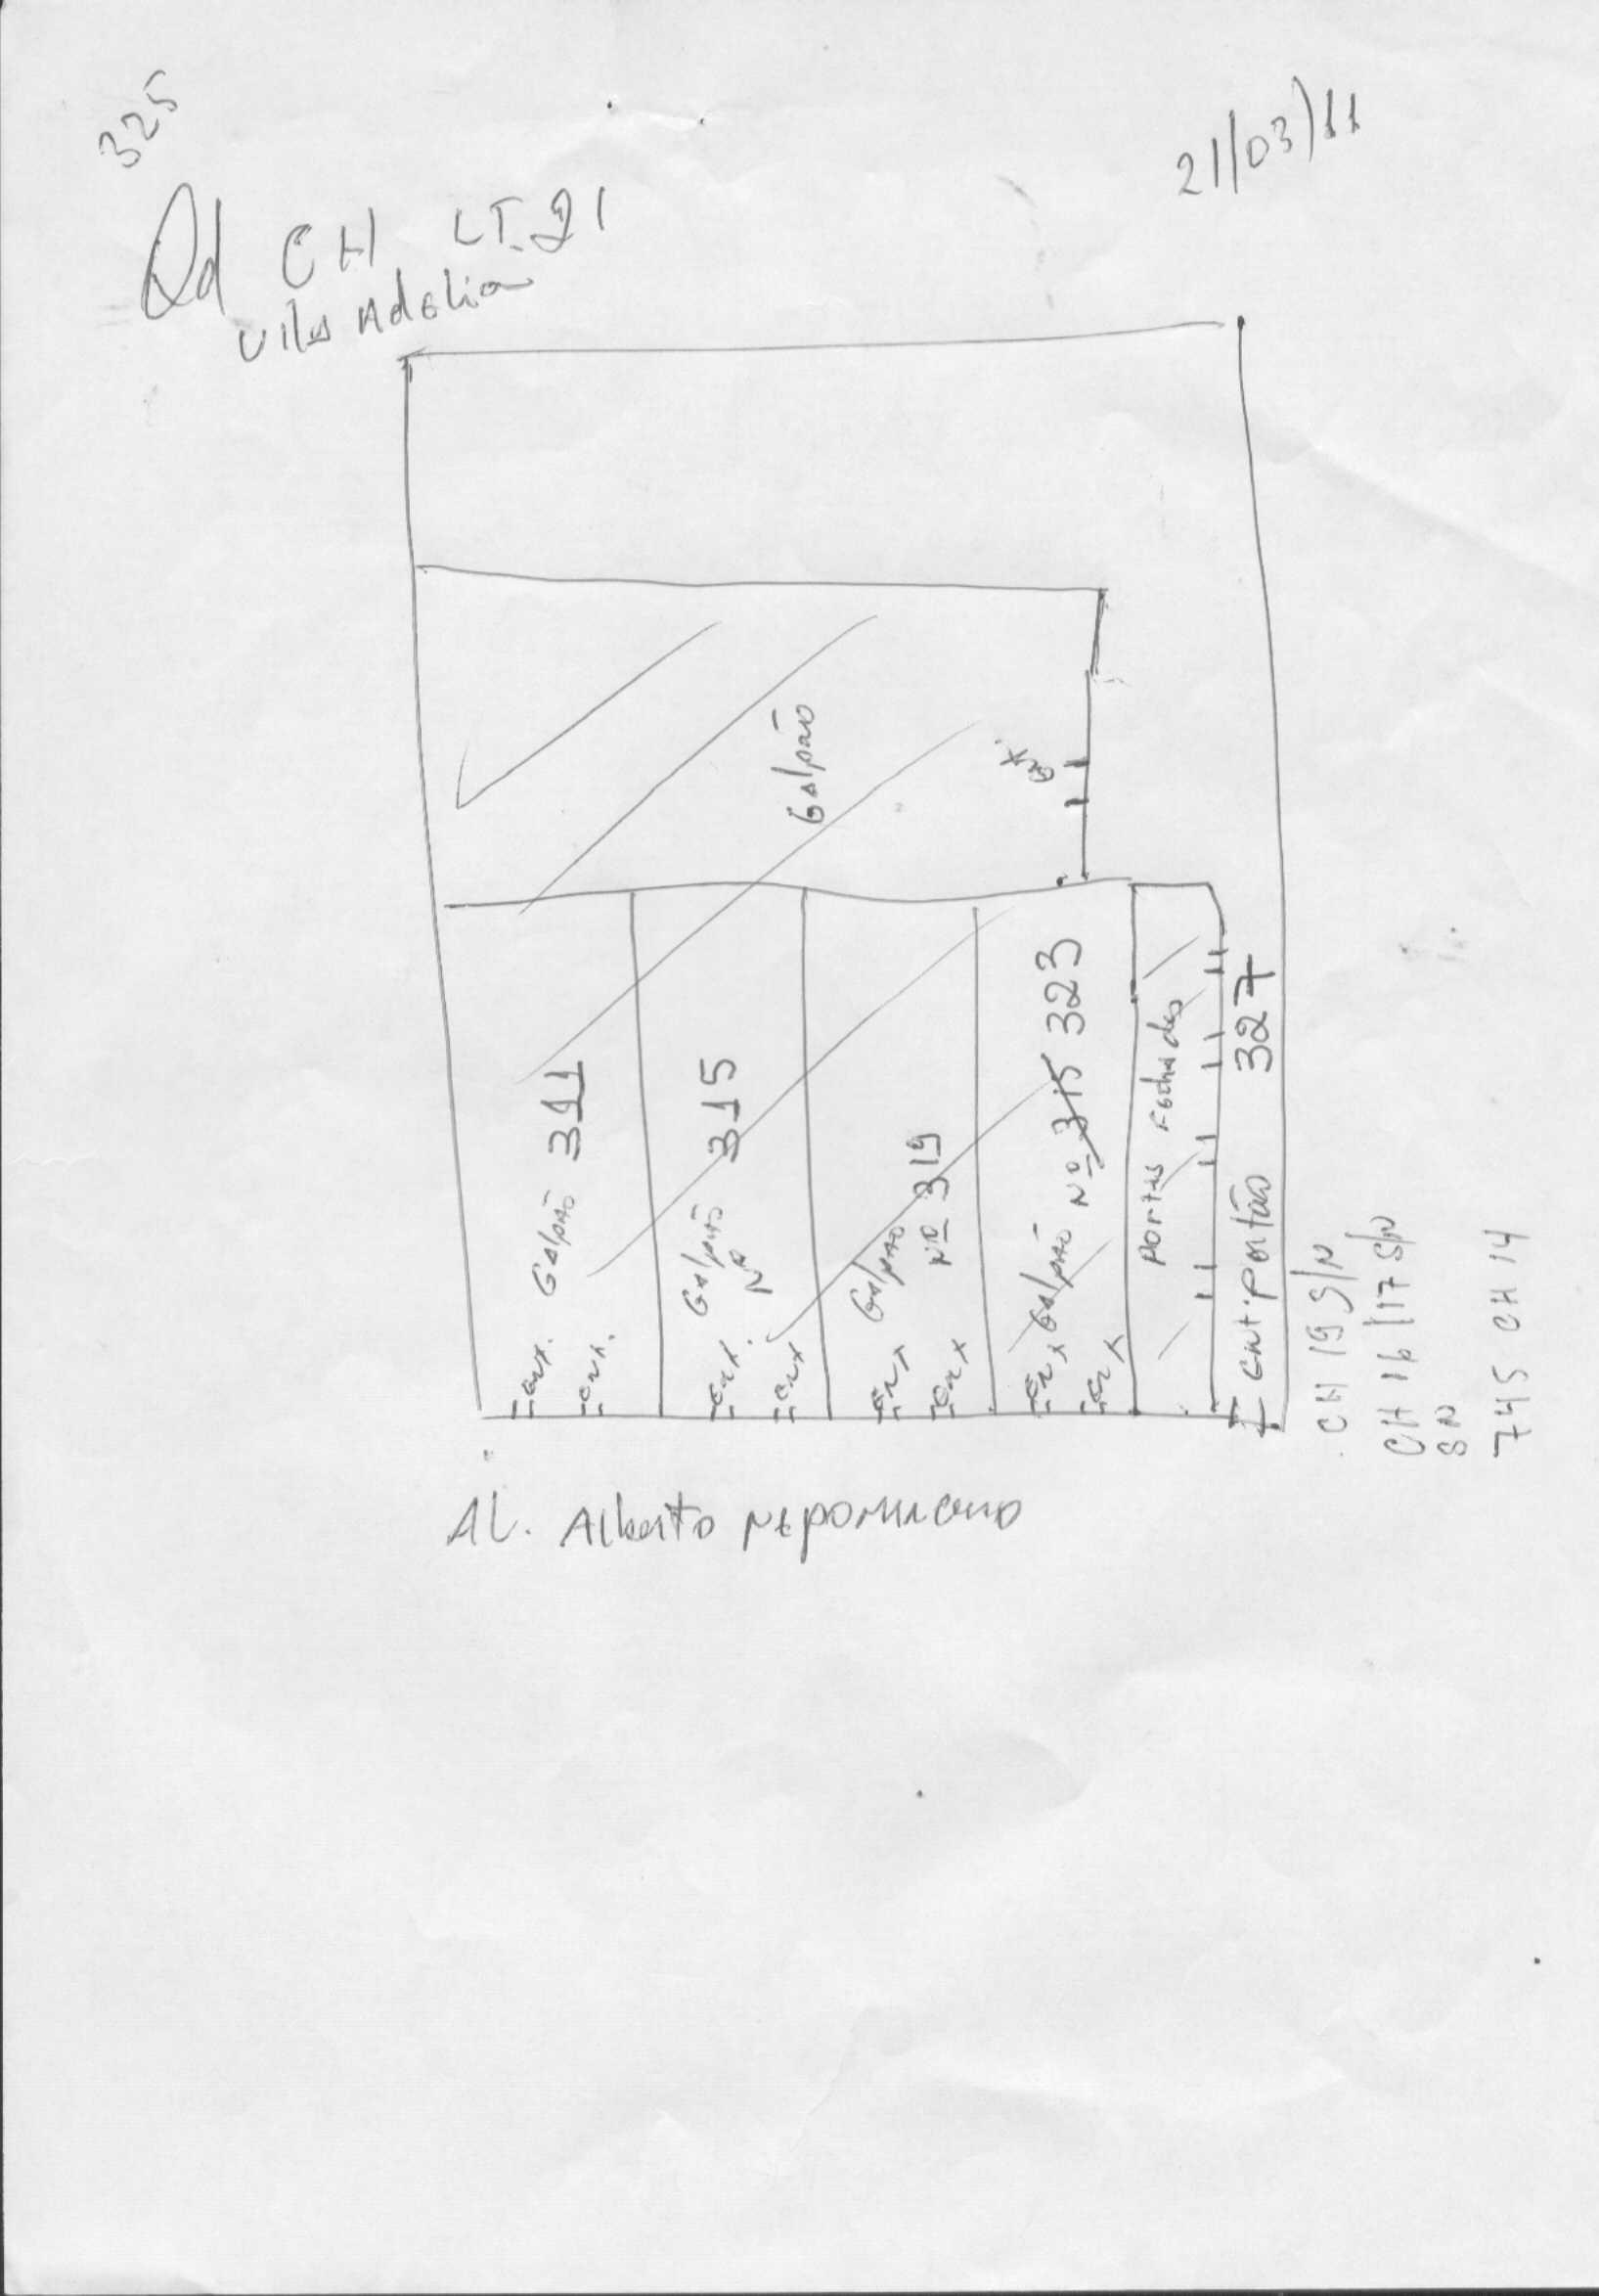 325
21/03/11
Qd CH LT. 21
Vila Adelia
Galpão
Galpão 311
Enx.
Enx.
Galpão
Nº 315
Enx.
Enx
Galpão
Nº 319
Enx
Enx
Galpão Nº 315 323
Enx
Enx
Portas Fechadas
Ent. Portão 327
CH 19 S/N
CH 16/17 S/N
SN
745 CH 14
AL. Alberto Nepomuceno